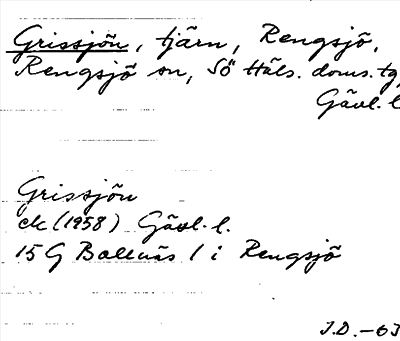 Grissjön, tjärn, Rengsjö,
Rengsjö sn, Sö Häls. doms. tg,
Gävl. l
Grissjön
ek (1958) Gävl. l.
15 G Bollnäs l i Rengsjö
J.D. -63